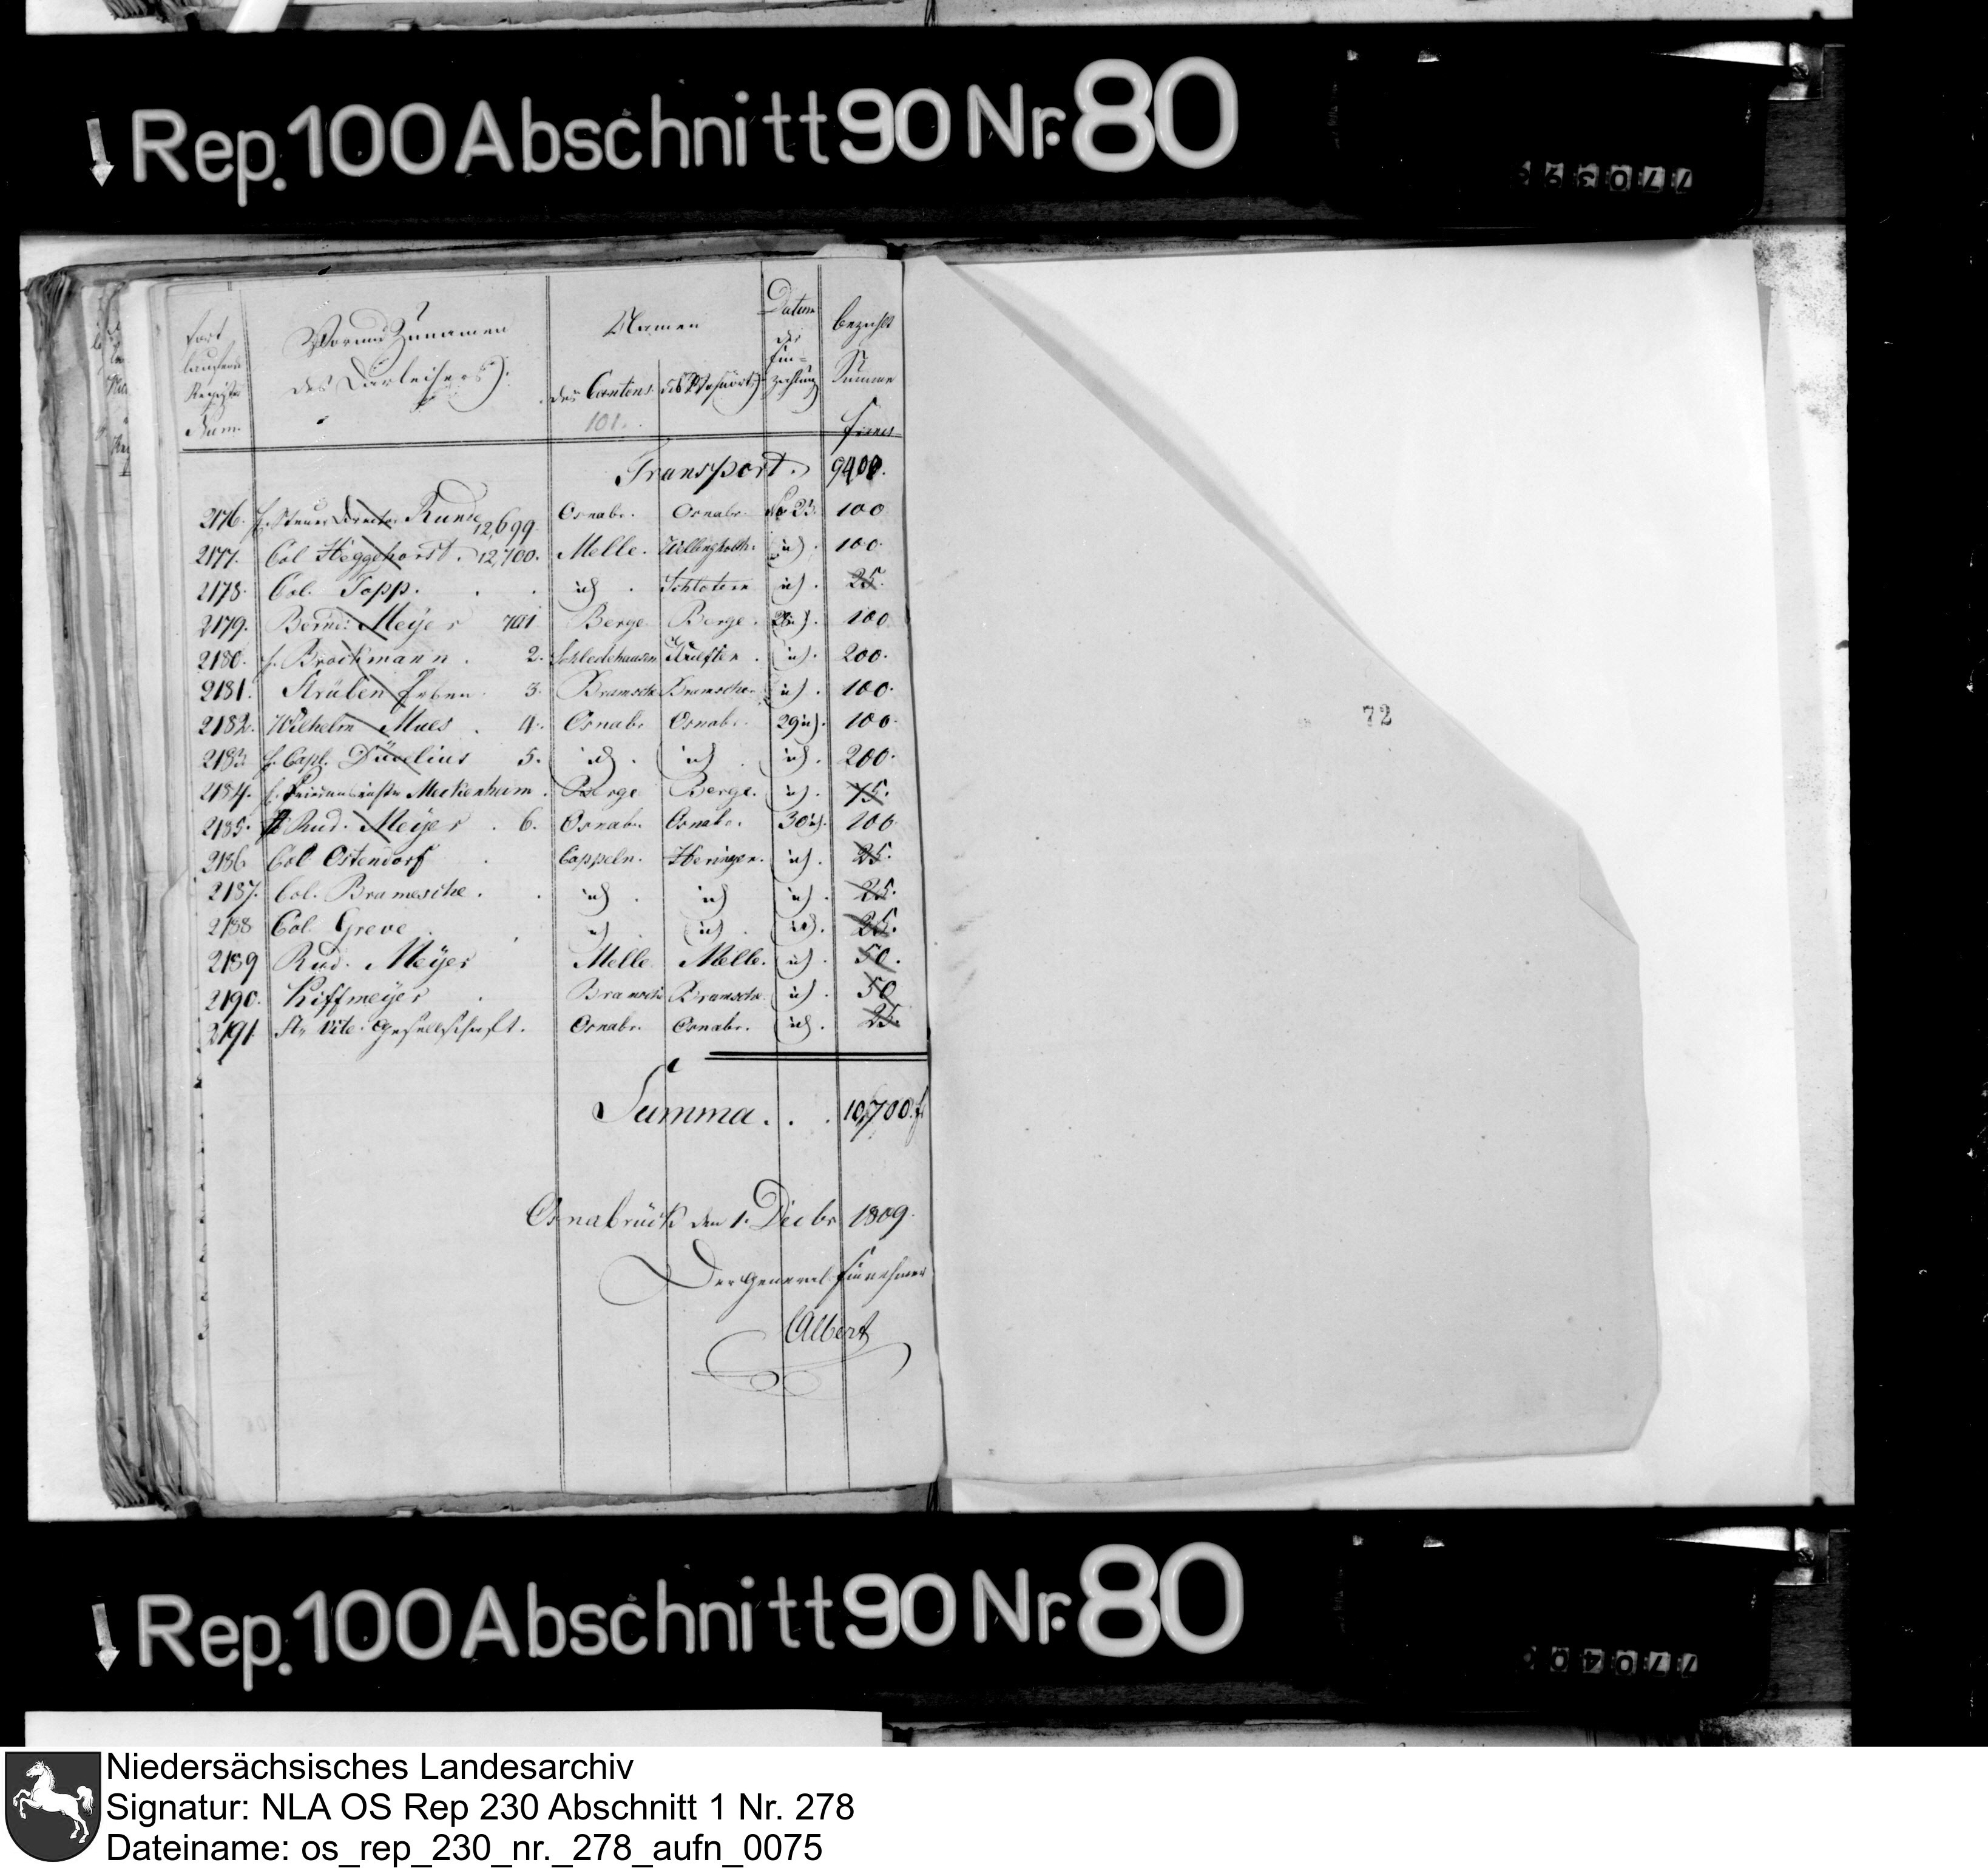 Rep. 100 Abschnitt 90 Nr. 80
Fort
laufende
Register
Num.
Vor und Zunamen
des Darleihers.
Namen
des Cantons
des Wohnorts
101.
Datum
der
Ein=
zahlung
bezahlte
Summe
francs
Transport. 9400.
2176. H. Steuer Director Runde 12,699. Osnabr. Osnabr. 23. 100
2177. Col Heggehorst. 12,700. Melle. Wellingholth. id. 100.
2178. Col. Topp. id. Schlotern id. 25.
2179. Bernd: Meyer 701 Berge Berge. 28. 100.
2180. H. Brockmann. 2. Schledehausen id. 200.
2181. Strüben Erben. 3. Bramsche Bramsche. id. 100.
2182. Wilhelm Maes. 4. Osnabr. Osnabr. 29 id. 100.
2183 H. Capl. 5. id. id. id. 200.
2184. H. Friedensrichter Meckenheim. Berge Berge. id. 75.
2185. Rud. Meyer. 6. Osnabr. Osnabr. 30 id. 100
2186 Col Ostendorf Cappeln. Heringen. id. 25.
2187. Col. Bramesche. id. id id. 25.
2188 Col. Greve id id. id. 25.
2189 Rud. Meyer Melle. Melle. id. 50.
2190. Kiffmeyer Bramsche Bramsche. id. 50
2191. Gesellschaft. Osnabr. Osnabr. id. 25.
Summa... 10,700. f
Osnabrück den 1. Decbr 1809.
Der General Einnehmer
Albert
72
Rep. 100 Abschnitt 90 Nr. 80
Niedersächsisches Landesarchiv
Signatur: NLA OS Rep 230 Abschnitt 1 Nr. 278
Dateiname: os_rep_230_nr._278_aufn_0075